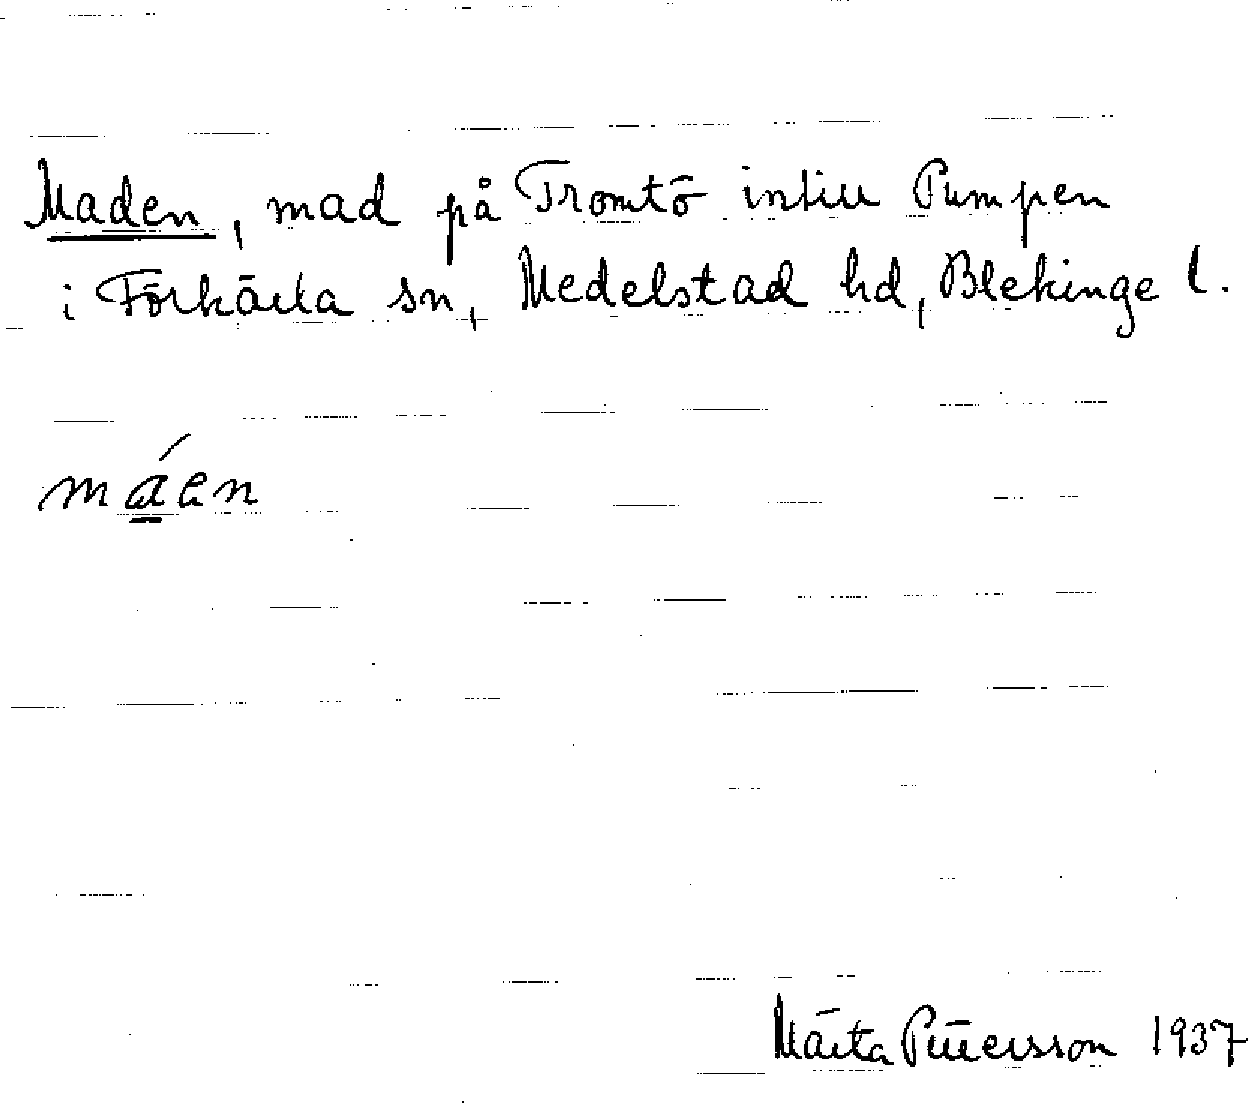 Maden, mad på Tromtö intill Pumpen
i Förkärla sn, Medelstad hd, Blekinge l.
máen
Märta Pettersson 1937